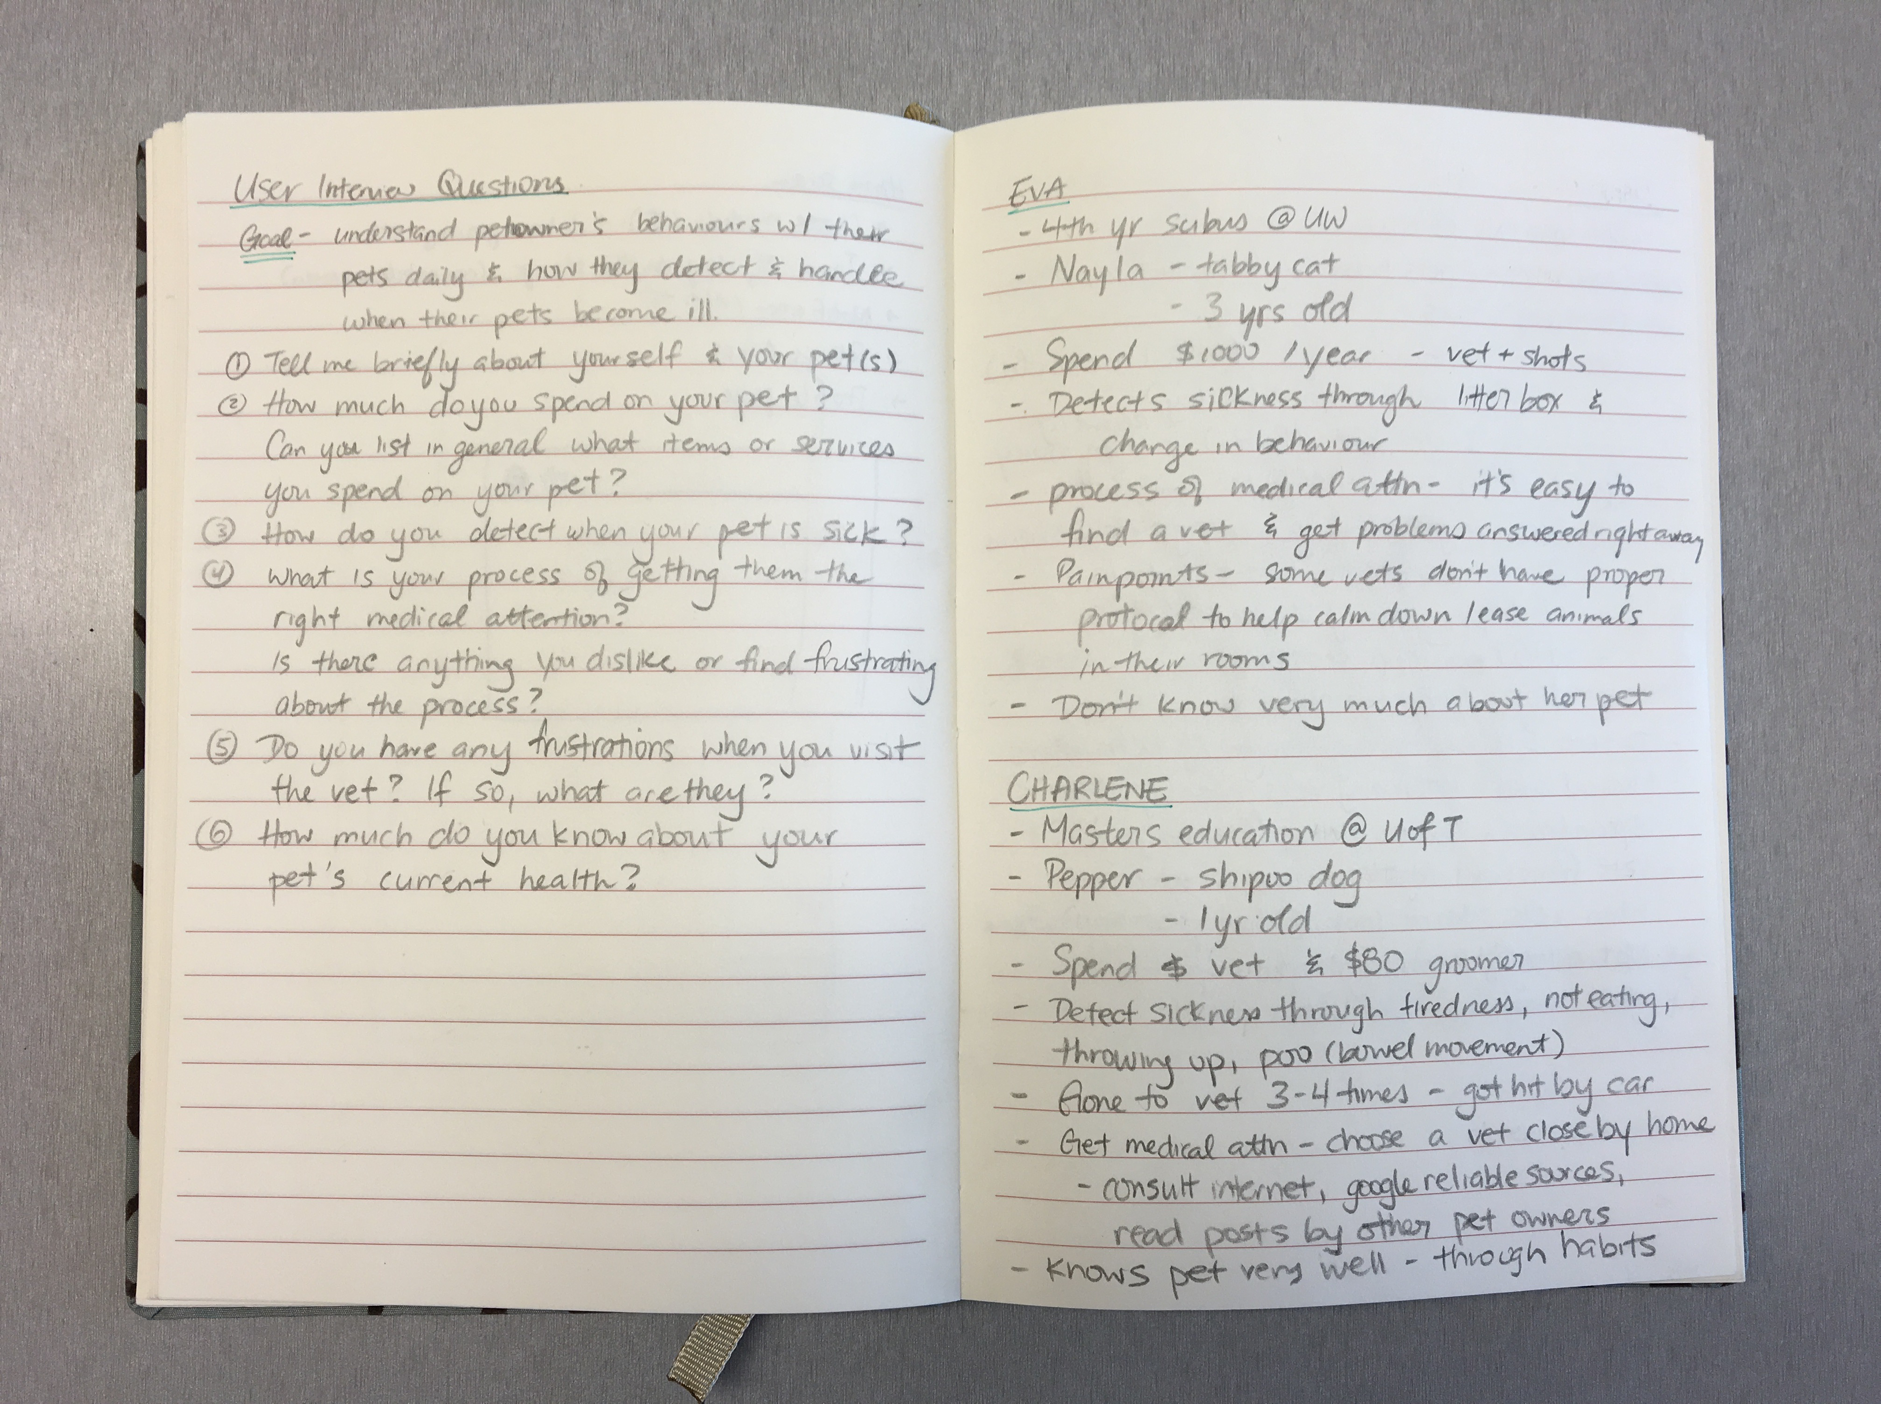 User Interview Questions
Goal - understand petowner's behaviours w/ their
pets daily & how they detect & handle
when their pets become ill.
① Tell me briefly about yourself & your pet(s)
② How much do you spend on your pet?
Can you list in general what items or services
you spend on your pet?
③ How do you detect when your pet is sick?
④ What is your process of getting them the
right medical attention?
Is there anything you dislike or find frustrating
about the process?
⑤ Do you have any frustrations when you visit
the vet? If so, what are they?
⑥ How much do you know about your
pet's current health?
EVA
- 4th yr scibus @ UW
- Nayla - tabby cat
- 3 yrs old
- Spend $1000 / year - vet + shots
- Detects sickness through litter box &
change in behaviour
- process of medical attn - it's easy to
find a vet & get problems answered right away
- Painpoints - some vets don't have proper
protocol to help calm down / ease animals
in their rooms
- Don't know very much about her pet
CHARLENE
- Masters education @ UofT
- Pepper - shipoo dog
- 1 yr old
- Spend $ vet & $80 groomer
- Detect sickness through tiredness, not eating,
throwing up, poo (bowel movement)
- Gone to vet 3-4 times - got hit by car
- Get medical attn - choose a vet close by home
- consult internet, google reliable sources,
read posts by other pet owners
- Knows pet very well - through habits